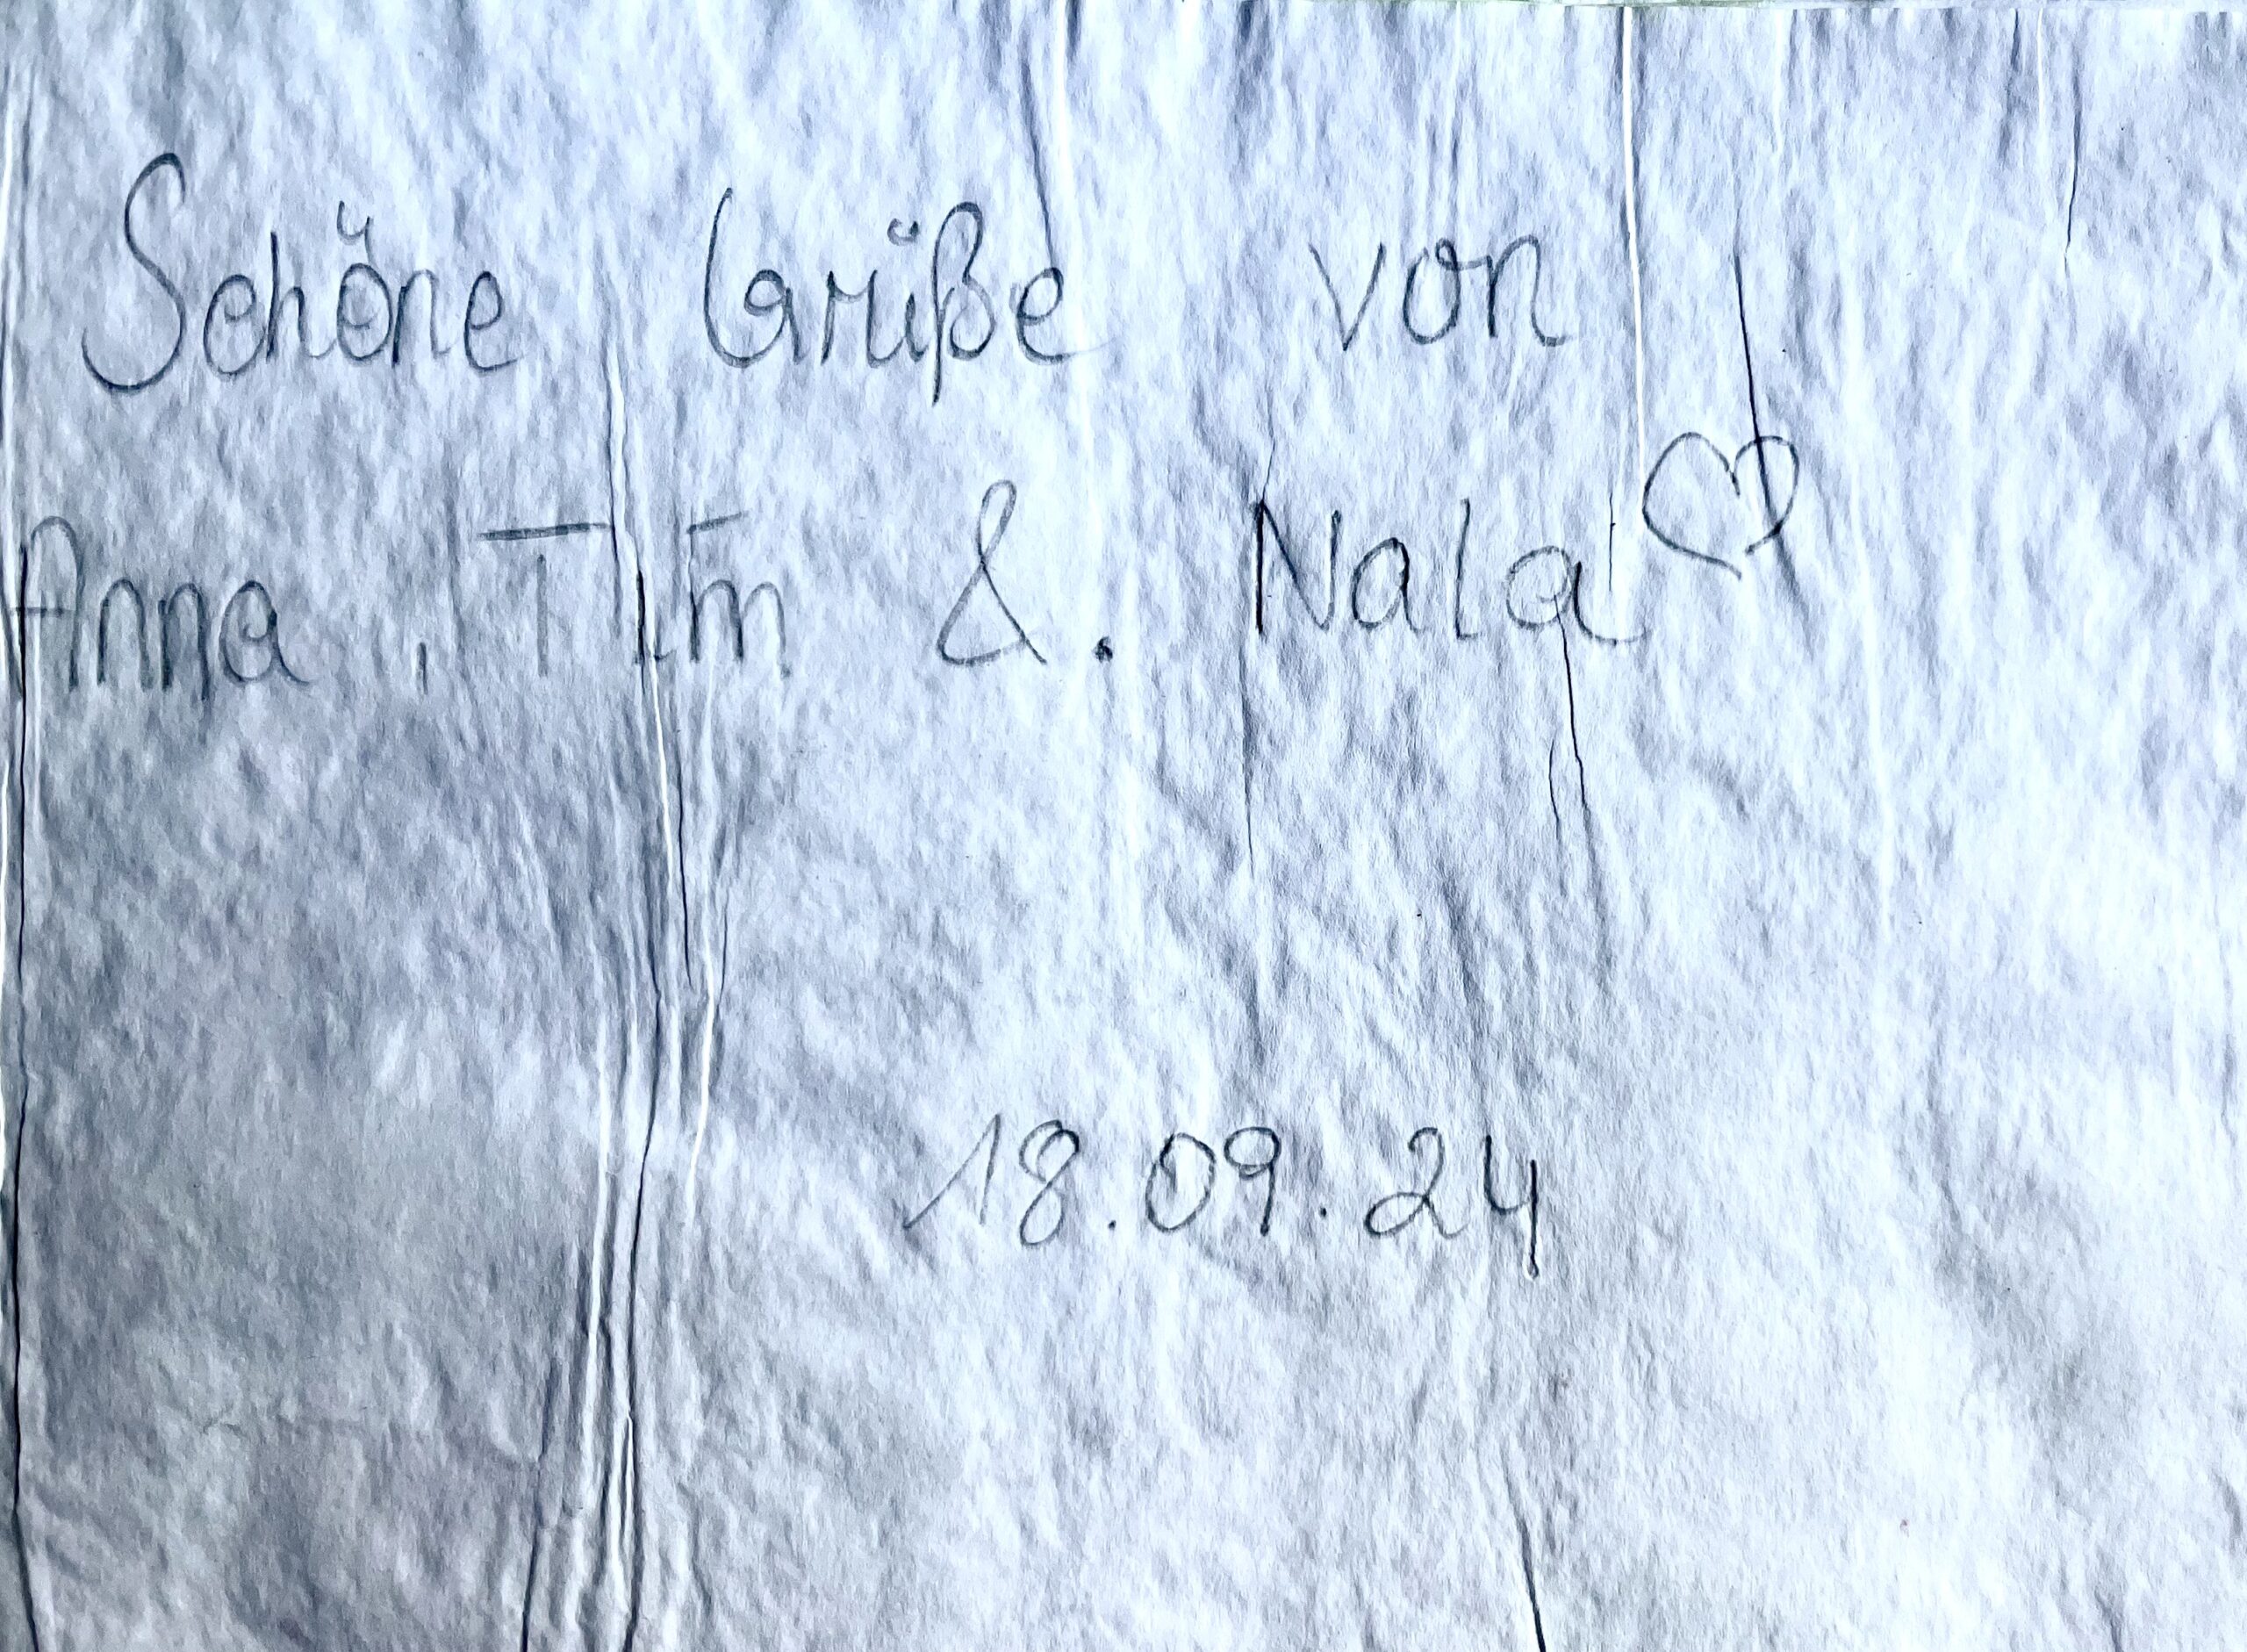 Schöne Grüße von
Anna, Tim &. Nala ♡
18.09.24